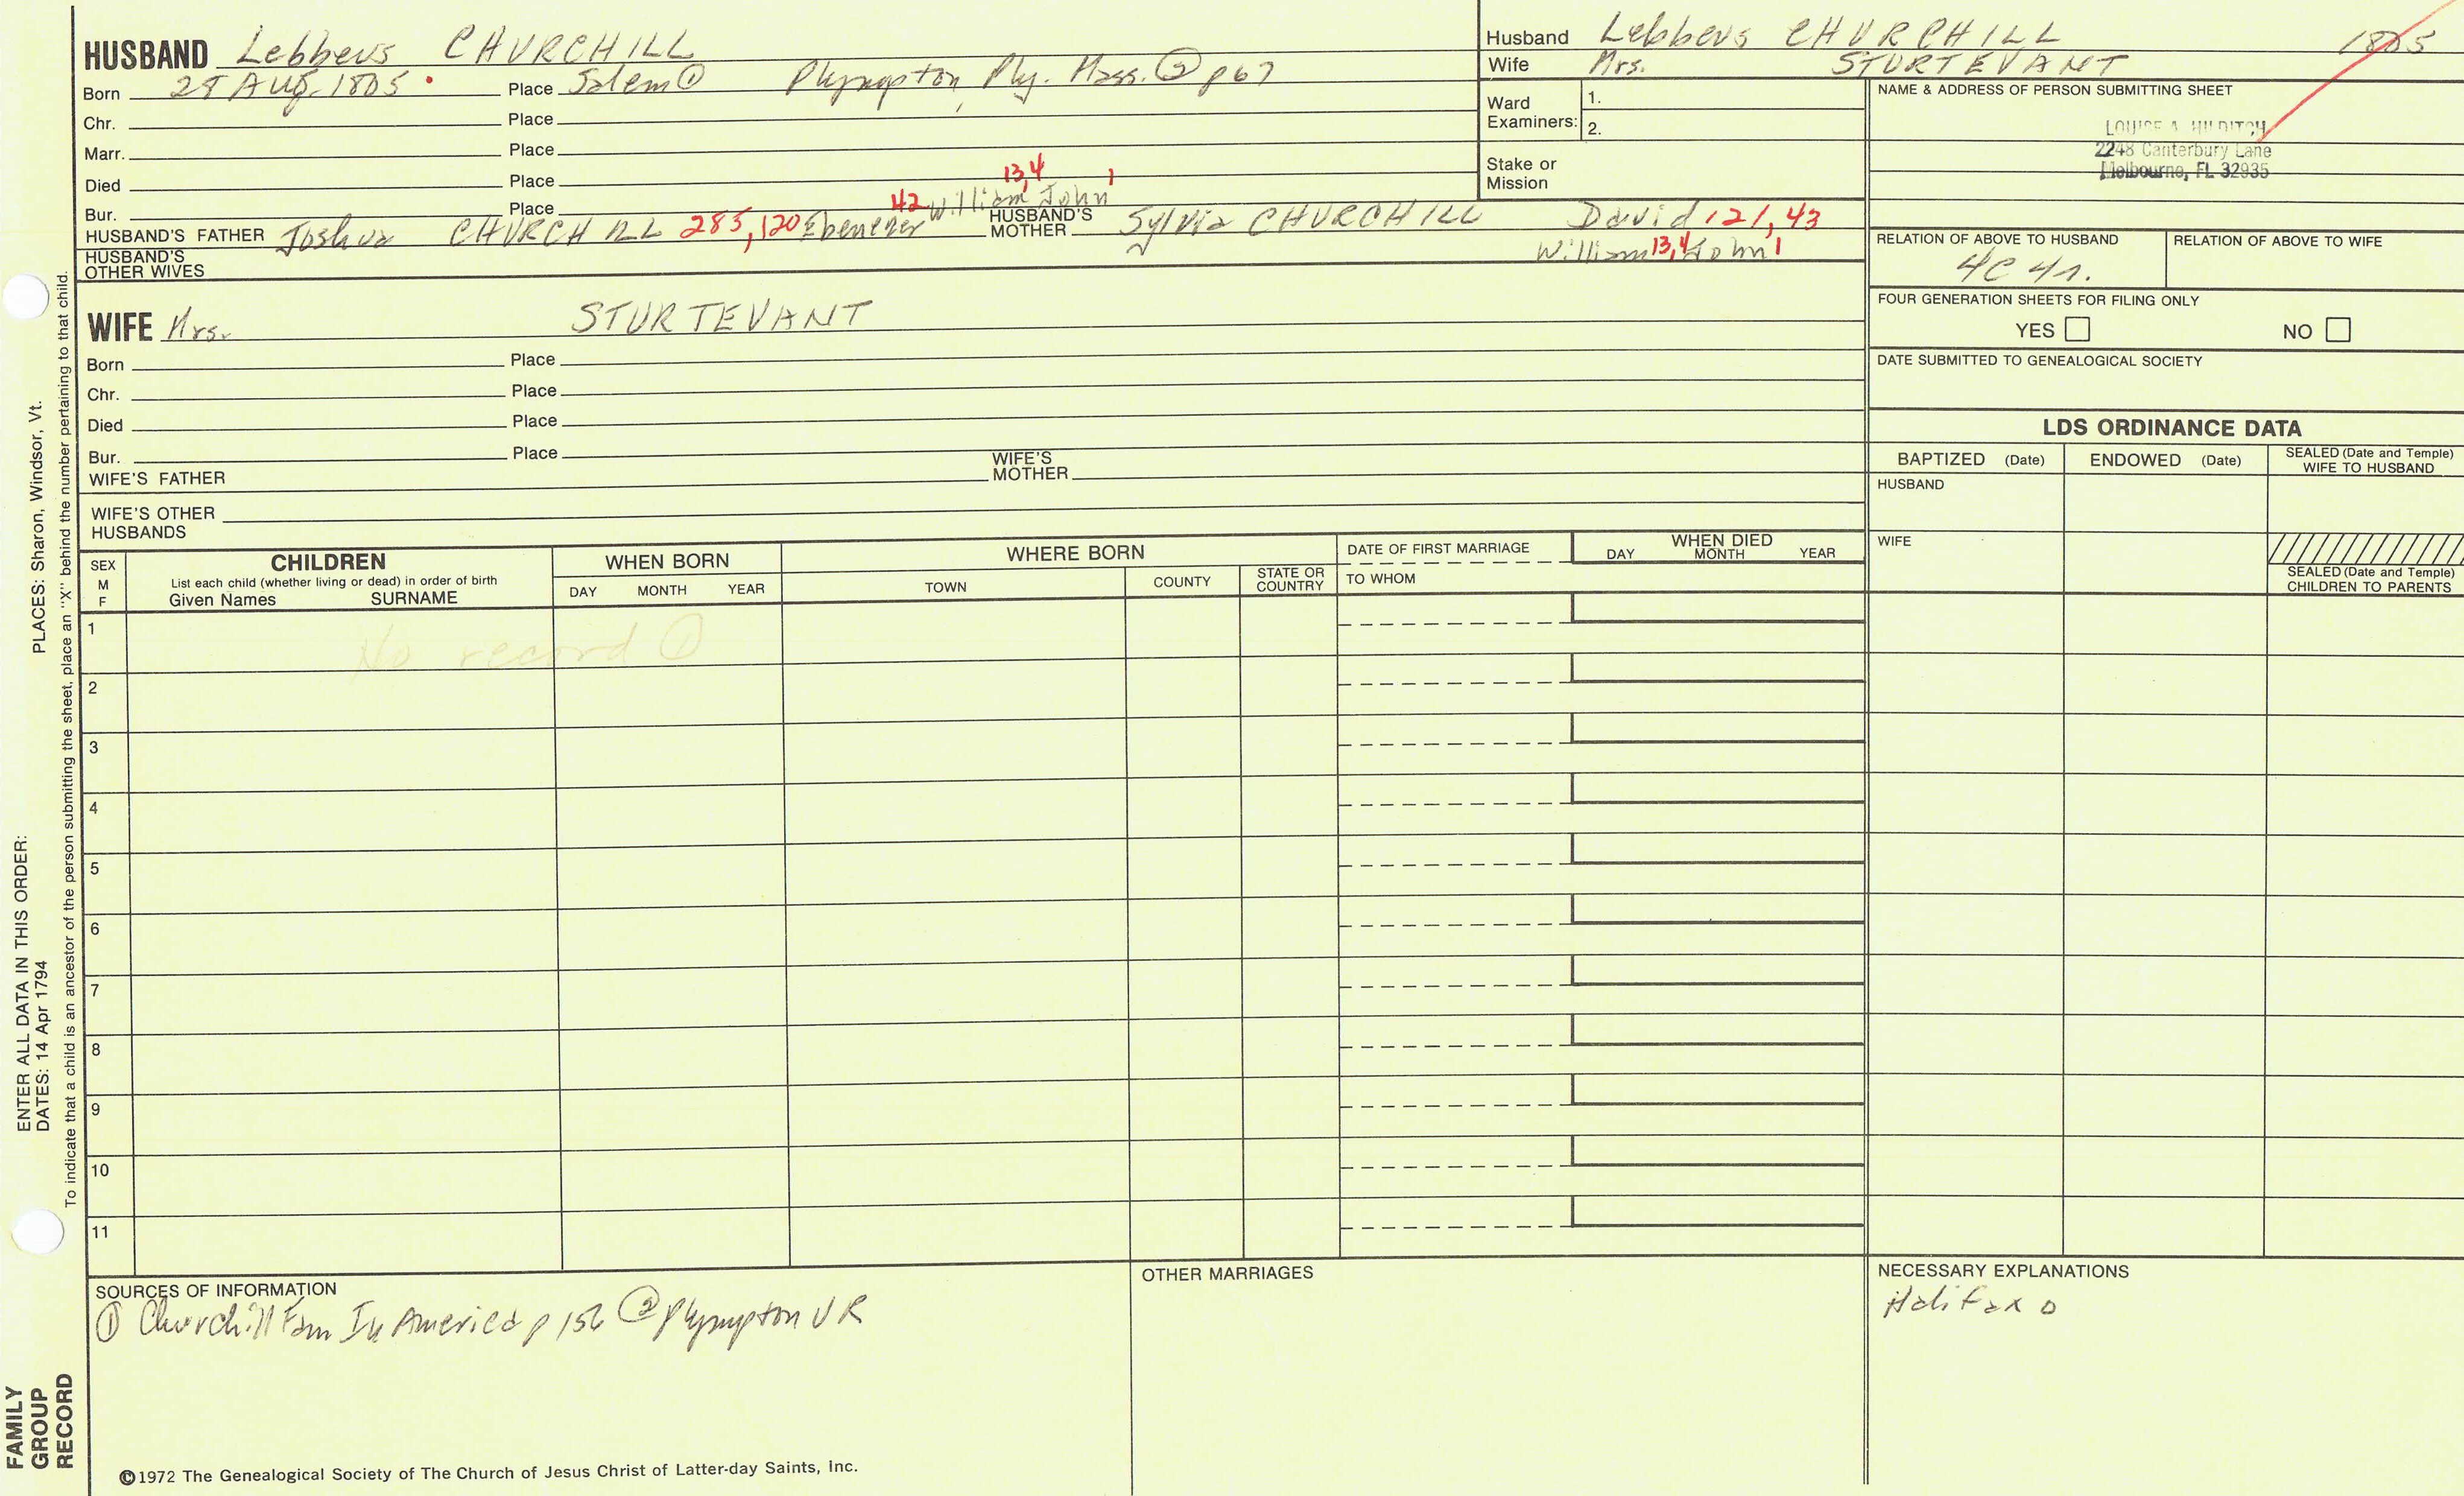 HUSBAND Lebbeus CHURCHILL
Born 28 AUG. 1805 Place Salem ① Plympton, Ply. Mass. ② p67
Chr. Place
Marr. Place
Died Place
Bur. Place
13,4 1
42 William John
HUSBAND'S FATHER Joshua CHURCHILL 285, 120 Ebenezer HUSBAND'S MOTHER Sylvia CHURCHILL David 121, 43
William 13,4 John 1
HUSBAND'S OTHER WIVES
WIFE Mrs. STURTEVANT
Born Place
Chr. Place
Died Place
Bur. Place
WIFE'S FATHER WIFE'S MOTHER
WIFE'S OTHER HUSBANDS
Husband Lebbeus CHURCHILL 1805
Wife Mrs. STURTEVANT
Ward Examiners: 1.
2.
Stake or Mission
NAME & ADDRESS OF PERSON SUBMITTING SHEET
LOUISE A. HILDITCH
2248 Canterbury Lane
Melbourne, FL 32935
RELATION OF ABOVE TO HUSBAND RELATION OF ABOVE TO WIFE
4C 4r.
FOUR GENERATION SHEETS FOR FILING ONLY
YES NO
DATE SUBMITTED TO GENEALOGICAL SOCIETY
LDS ORDINANCE DATA
BAPTIZED (Date) ENDOWED (Date) SEALED (Date and Temple) WIFE TO HUSBAND
HUSBAND
WIFE
SEALED (Date and Temple) CHILDREN TO PARENTS
SEX M F
CHILDREN
List each child (whether living or dead) in order of birth
Given Names SURNAME
WHEN BORN
DAY MONTH YEAR
WHERE BORN
TOWN COUNTY STATE OR COUNTRY
DATE OF FIRST MARRIAGE
TO WHOM
WHEN DIED
DAY MONTH YEAR
1 No record ①
2
3
4
5
6
7
8
9
10
11
SOURCES OF INFORMATION
① Churchill Fam In America p 156 ② Plympton VR
OTHER MARRIAGES
NECESSARY EXPLANATIONS
Halifax o
©1972 The Genealogical Society of The Church of Jesus Christ of Latter-day Saints, Inc.
ENTER ALL DATA IN THIS ORDER:
DATES: 14 Apr 1794 PLACES: Sharon, Windsor, Vt.
To indicate that a child is an ancestor of the person submitting the sheet, place an "X" behind the number pertaining to that child.
FAMILY
GROUP
RECORD